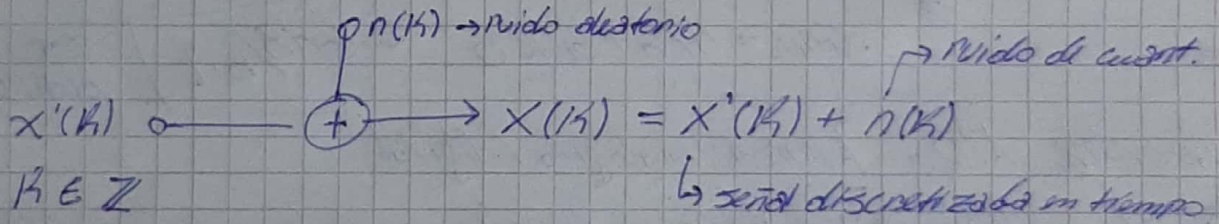 n(k) → ruido aleatorio
→ ruido de cuant.
x'(k) + → x(k) = x'(k) + n(k)
k ∈ ℤ ↳ señal discretizada en tiempo